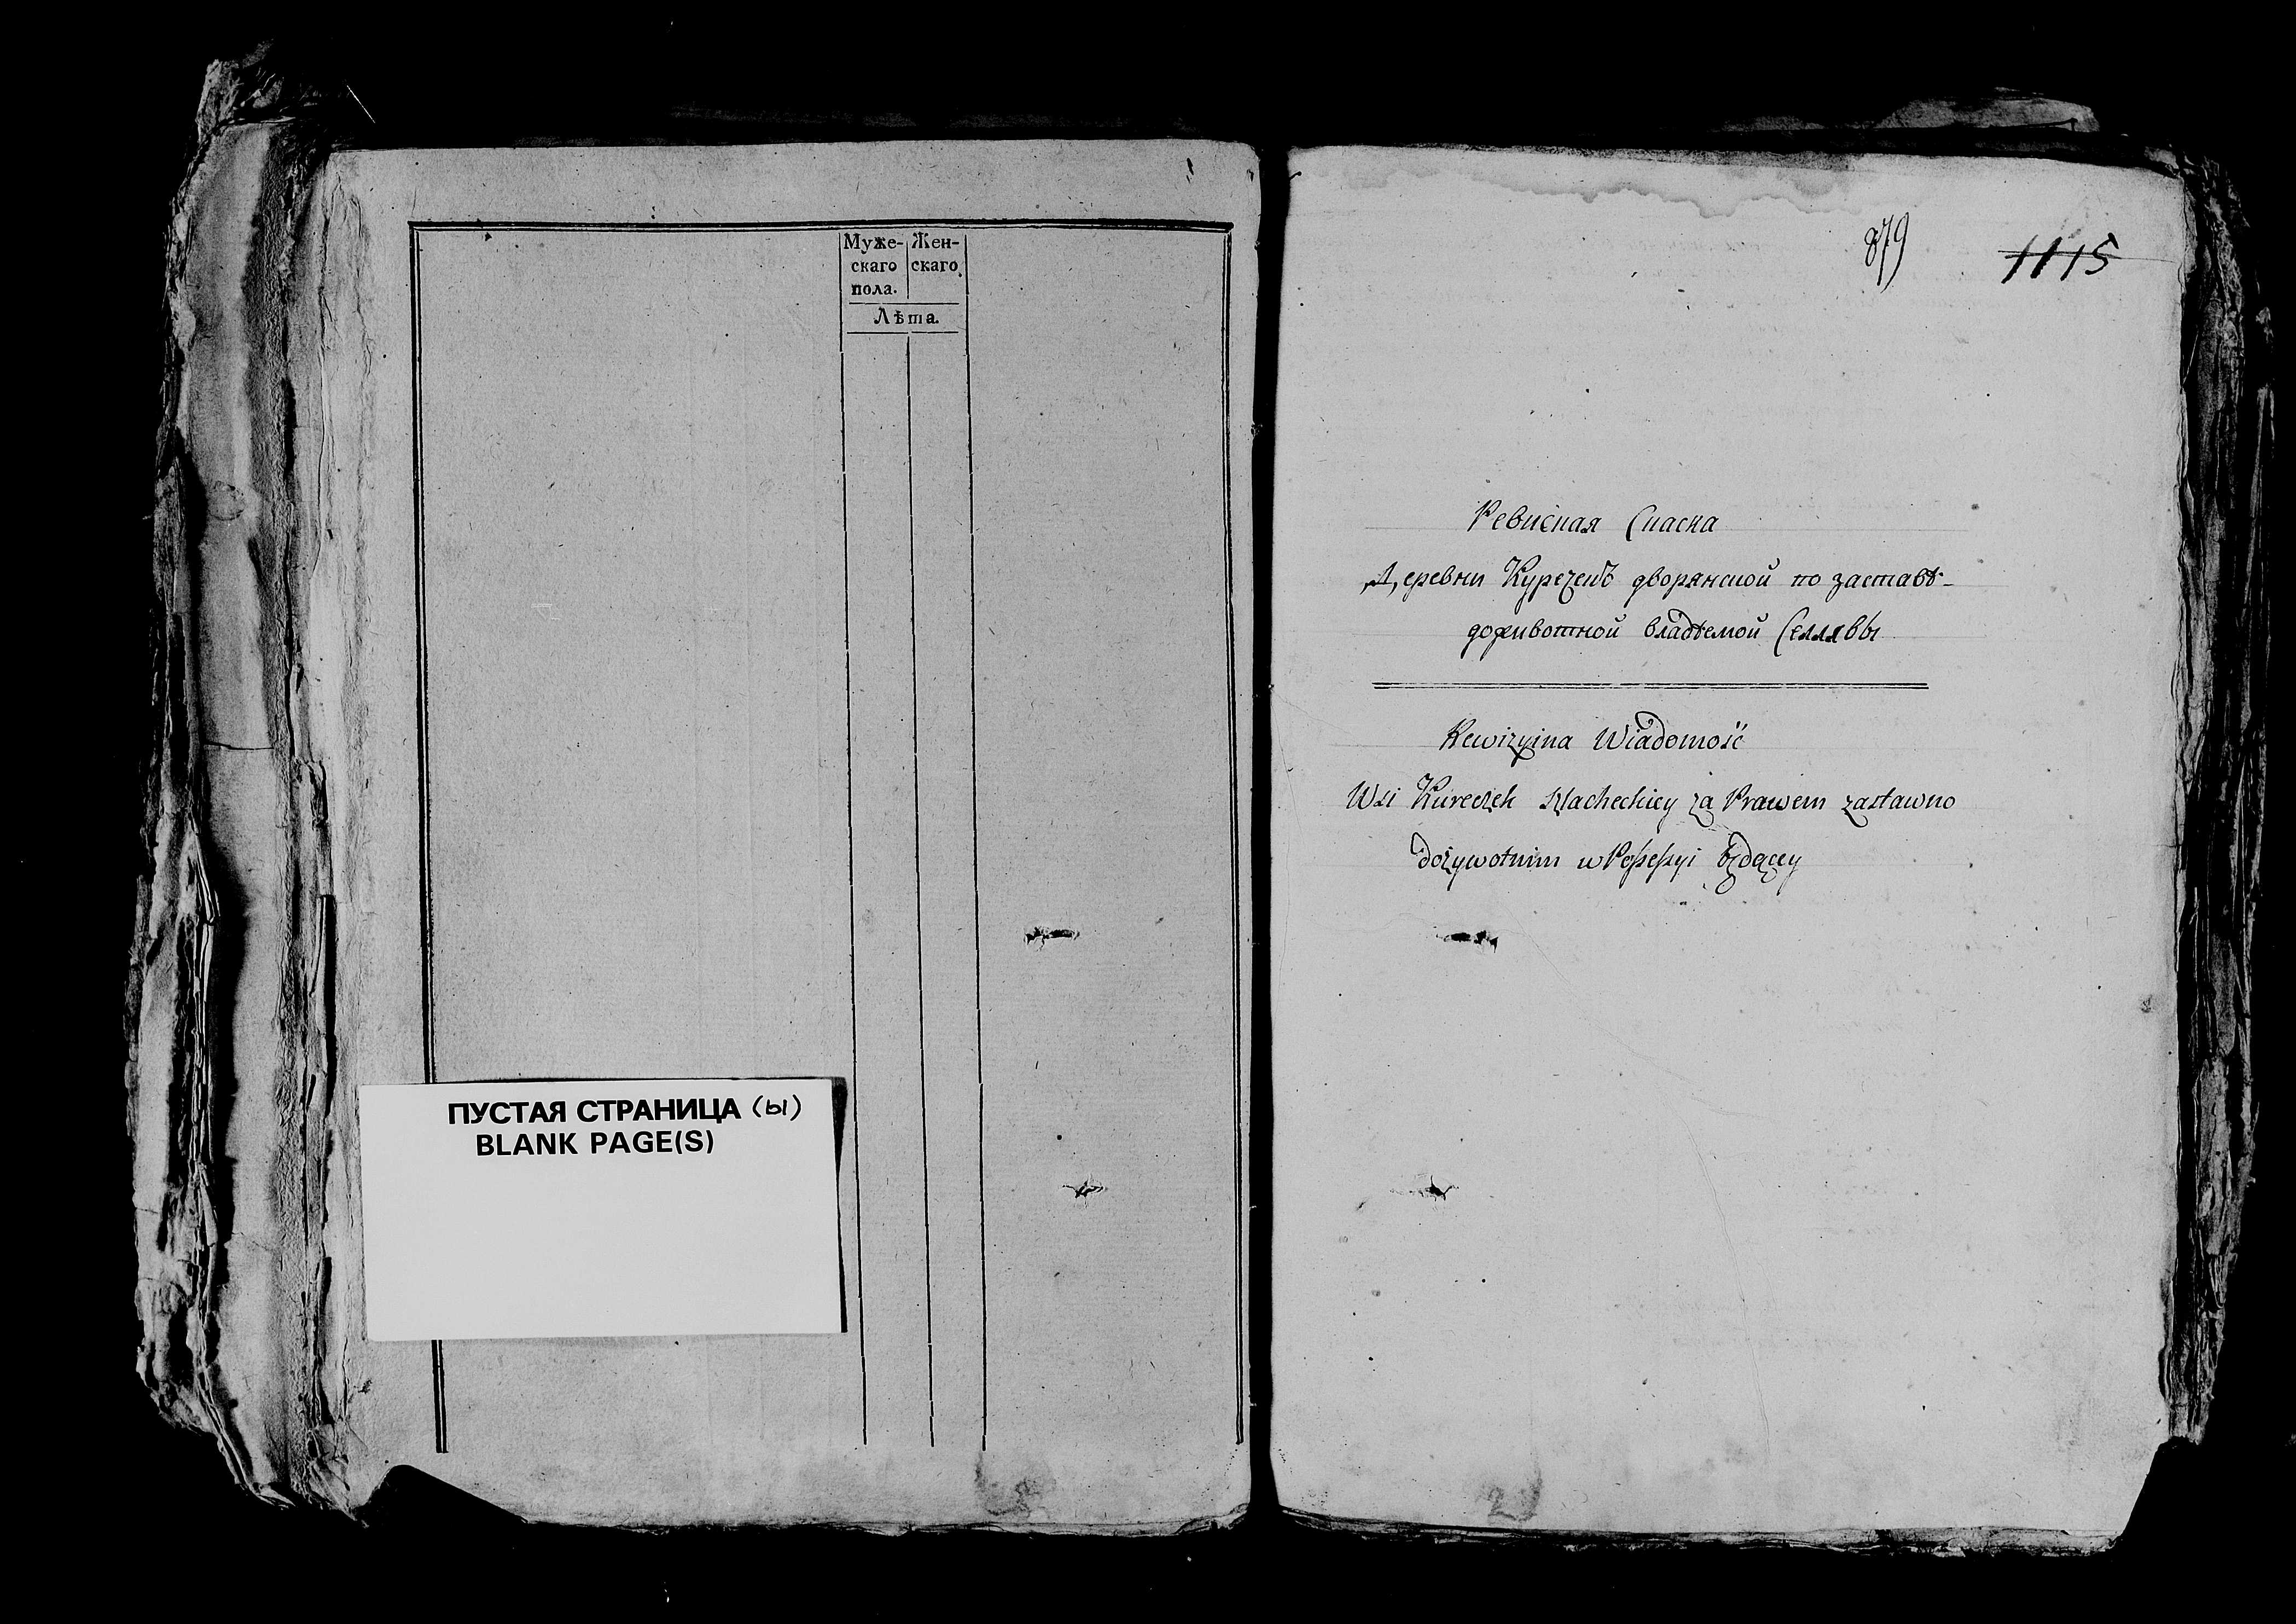 Муже-
скаго
пола.
Жен-
скаго
Лѣта.
ПУСТАЯ СТРАНИЦА (ы)
BLANK PAGE(S)
879
1115
Ревиская Скаска
Деревни Куречекъ дворянской по заставѣ-
доживотной владѣемой Селлявы
Rewizyina Wiadomość
Wsi Kureczek szlacheckiey za Prawem zastawno
dożywotnim w Possessyi będącey